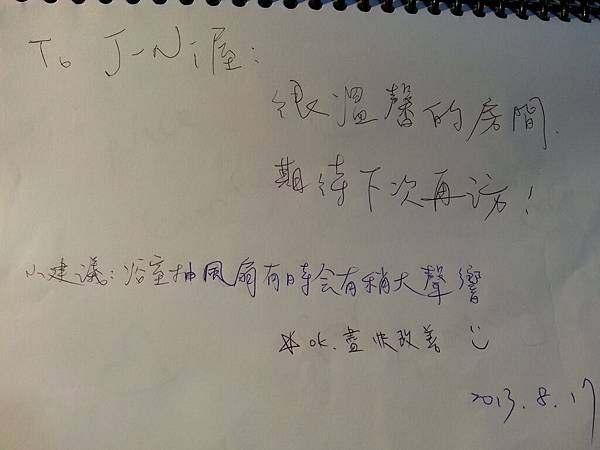 To J-Ni屋:
很溫馨的房間.
期待下次再訪!
小建議:浴室抽風扇有時會有稍大聲響
* ok.盡快改善
2013.8.17